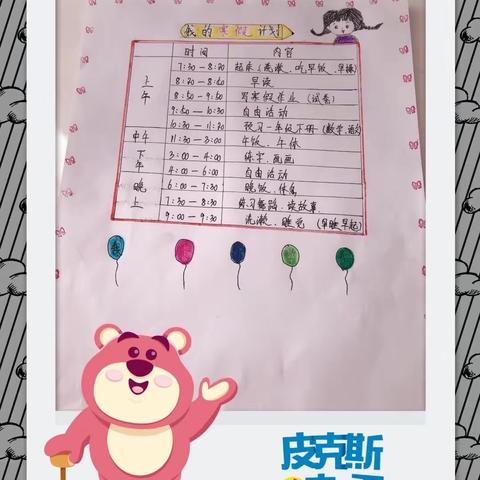 我的寒假计划
时间 内容
上午 7:30 — 8:20 起床(洗漱、吃早饭、早操)
8:20 — 8:50 早读
8:50 — 9:50 写寒假作业(试卷)
9:50 — 10:30 自由活动
10:30 — 11:20 预习一年级下册(数学、语文)
中午 11:30 — 3:00 午饭、午休
下午 3:00 — 4:00 练字、画画
4:00 — 6:00 自由活动
晚上 6:00 — 7:30 晚饭、休息
7:30 — 8:30 练习舞蹈、读故事
9:00 — 9:30 洗漱、睡觉 (早睡早起)
皮克斯